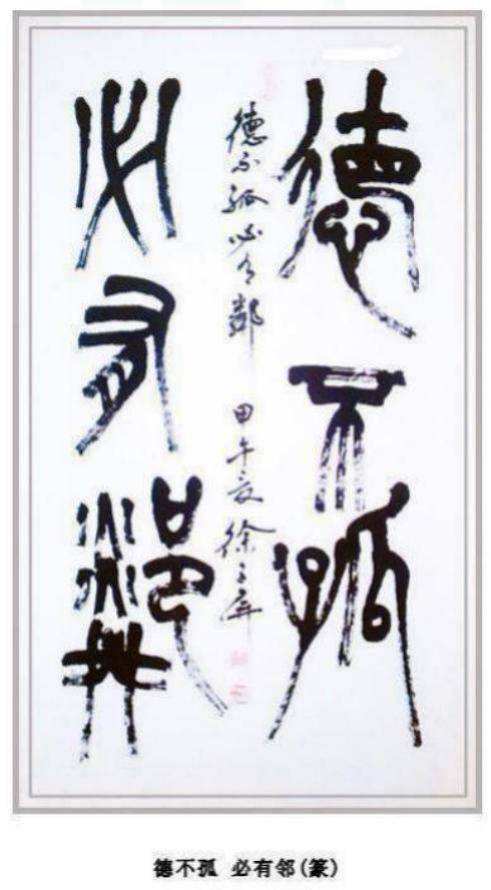 德不孤
德不孤必有鄰 甲午夏徐子屏
必有鄰
德不孤 必有邻(篆)